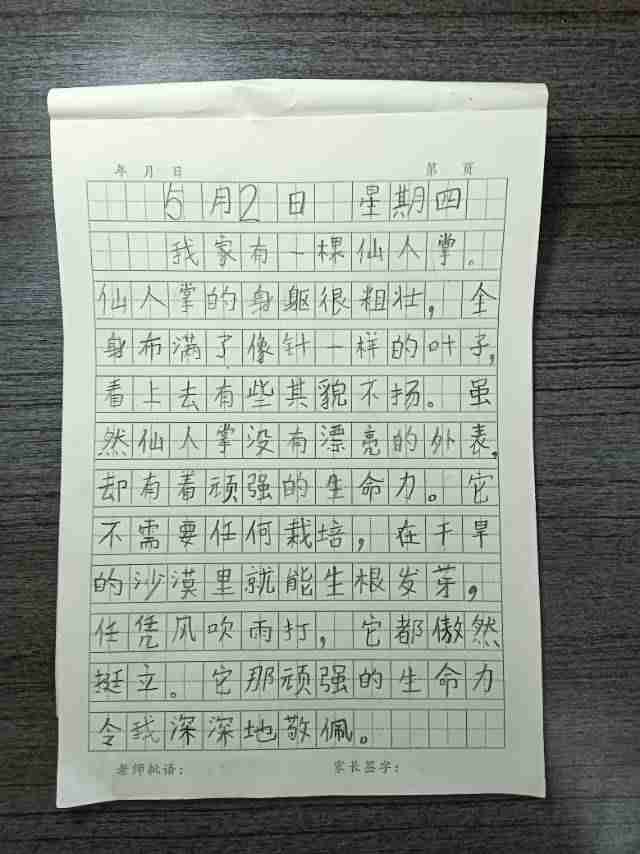 年 月 日 第 页
5月2日 星期四
我家有一棵仙人掌。
仙人掌的身躯很粗壮，全
身布满了像针一样的叶子，
看上去有些其貌不扬。虽
然仙人掌没有漂亮的外表，
却有着顽强的生命力。它
不需要任何栽培，在干旱
的沙漠里就能生根发芽，
任凭风吹雨打，它都傲然
挺立。它那顽强的生命力
令我深深地敬佩。
老师批语： 家长签字：